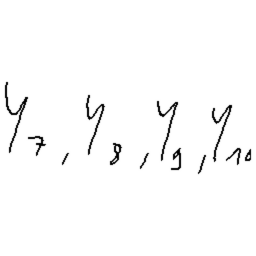 y₇, y₈, y₉, y₁₀